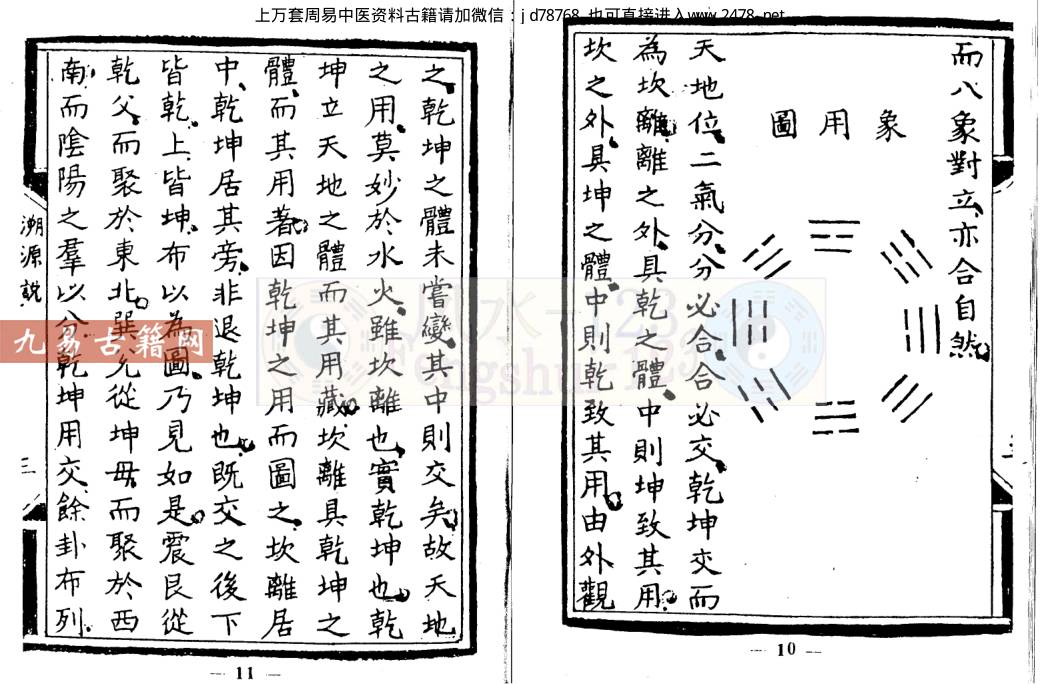 上万套周易中医资料古籍请加微信：jd78768 也可直接进入www.2478.net
而八象對立亦合自然
象用圖
天地位二氣分分必合合必交乾坤交而
為坎離離之外具乾之體中則坤致其用
坎之外具坤之體中則乾致其用由外觀
— 10 —
之乾坤之體未嘗變其中則交矣故天地
之用莫妙於水火雖坎離也實乾坤也乾
坤立天地之體而其用藏坎離具乾坤之
體而其用著因乾坤之用而圖之坎離居
中乾坤居其旁非退乾坤也既交之後下
皆乾上皆坤布以為圖乃見如是震艮從
乾父而聚於東北巽兌從坤毋而聚於西
南而陰陽之羣以分乾坤用交餘卦布列
溯源說
三
— 11 —
九易古籍网
风水一123
fengshui123